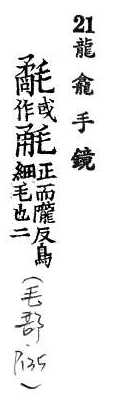 21 龍龕手鏡
氄或作正而隴反鳥細毛也二
(毛部, P.135)